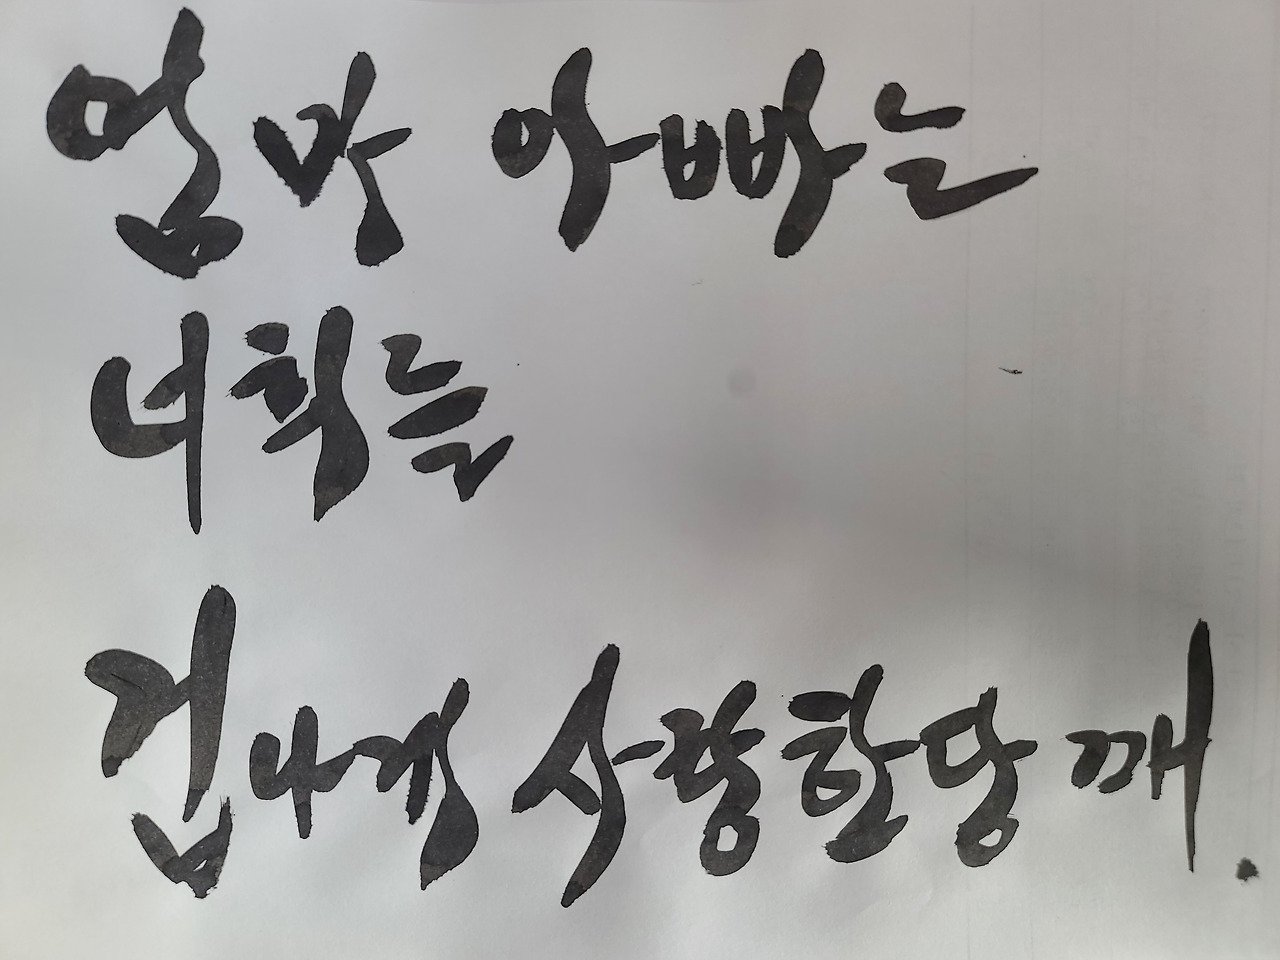 엄마 아빠는
너희를
겁나게 사랑한당깨.